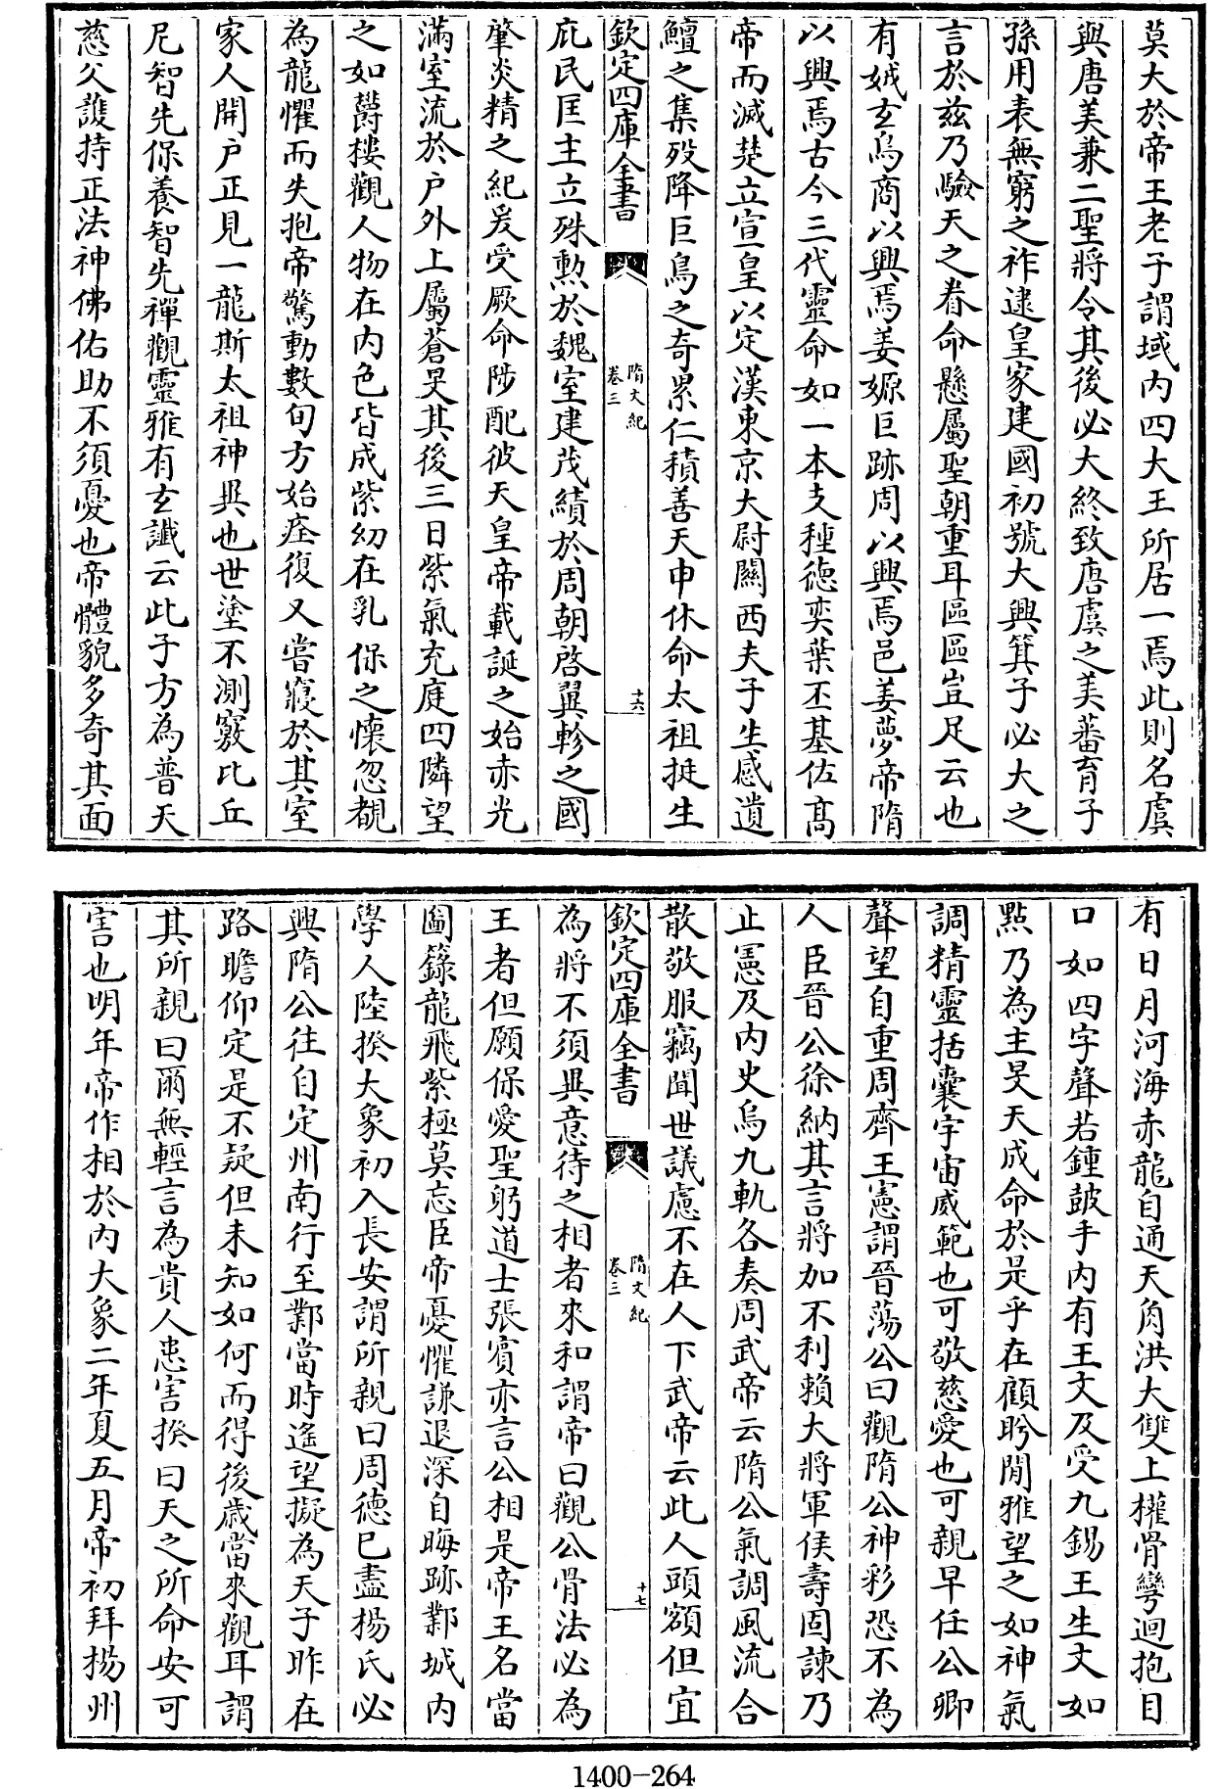 莫大於帝王老子謂域内四大王所居一焉此則名虞
與唐美兼二聖將令其後必大終致唐虞之美蕃育子
孫用表無窮之祚逮皇家建國初號大興箕子必大之
言於兹乃驗天之眷命懸屬聖朝重耳區區豈足云也
有娀玄鳥商以興焉姜嫄巨跡周以興焉邑姜夢帝隋
以興焉古今三代靈命如一本支種徳奕葉丕基佐髙
帝而滅楚立宣皇以定漢東京大尉闗西夫子生感遺
鱣之集殁降巨鳥之奇累仁積善天申休命太祖挺生
欽定四庫全書
隋文紀
卷三
十六
庇民匡主立殊勲於魏室建茂績於周朝啓翼軫之國
肇炎精之紀爰受厥命陟配彼天皇帝載誕之始赤光
滿室流於户外上屬蒼旻其後三日紫氣充庭四隣望
之如欝樓觀人物在内色皆成紫幼在乳保之懷忽覩
為龍懼而失抱帝驚動數旬方始痊復又嘗寢於其室
家人開户正見一龍斯太祖神異也世塗不測竅比丘
尼智先保養智先禪觀靈雅有玄讖云此子方為普天
慈父護持正法神佛佑助不須憂也帝體貌多奇其面
有日月河海赤龍自通天角洪大雙上權骨彎迴抱目
口如四字聲若鍾鼓手内有王文及受九錫王生文如
點乃為主昊天成命於是乎在顧盻閒雅望之如神氣
調精靈括囊宇宙威範也可敬慈愛也可親早任公卿
聲望自重周齊王憲謂晉蕩公曰觀隋公神彩恐不為
人臣晉公徐納其言將加不利賴大將軍侯壽固諫乃
止憲及内史烏九軌各奏周武帝云隋公氣調風流合
散敬服竊聞世議慮不在人下武帝云此人頭額但宜
欽定四庫全書
隋文紀
卷三
十七
為將不須異意待之相者來和謂帝曰觀公骨法必為
王者但願保愛聖躬道士張賓亦言公相是帝王名當
圖籙龍飛紫極莫忘臣帝憂懼謙退深自晦跡鄴城内
學人陸揆大象初入長安謂所親曰周徳已盡楊氏必
興隋公往自定州南行至鄴當時遙望擬為天子昨在
路瞻仰定是不疑但未知如何而得後歳當來觀耳謂
其所親曰爾無輕言為貴人患害揆曰天之所命安可
害也明年帝作相於内大象二年夏五月帝初拜揚州
1400-264